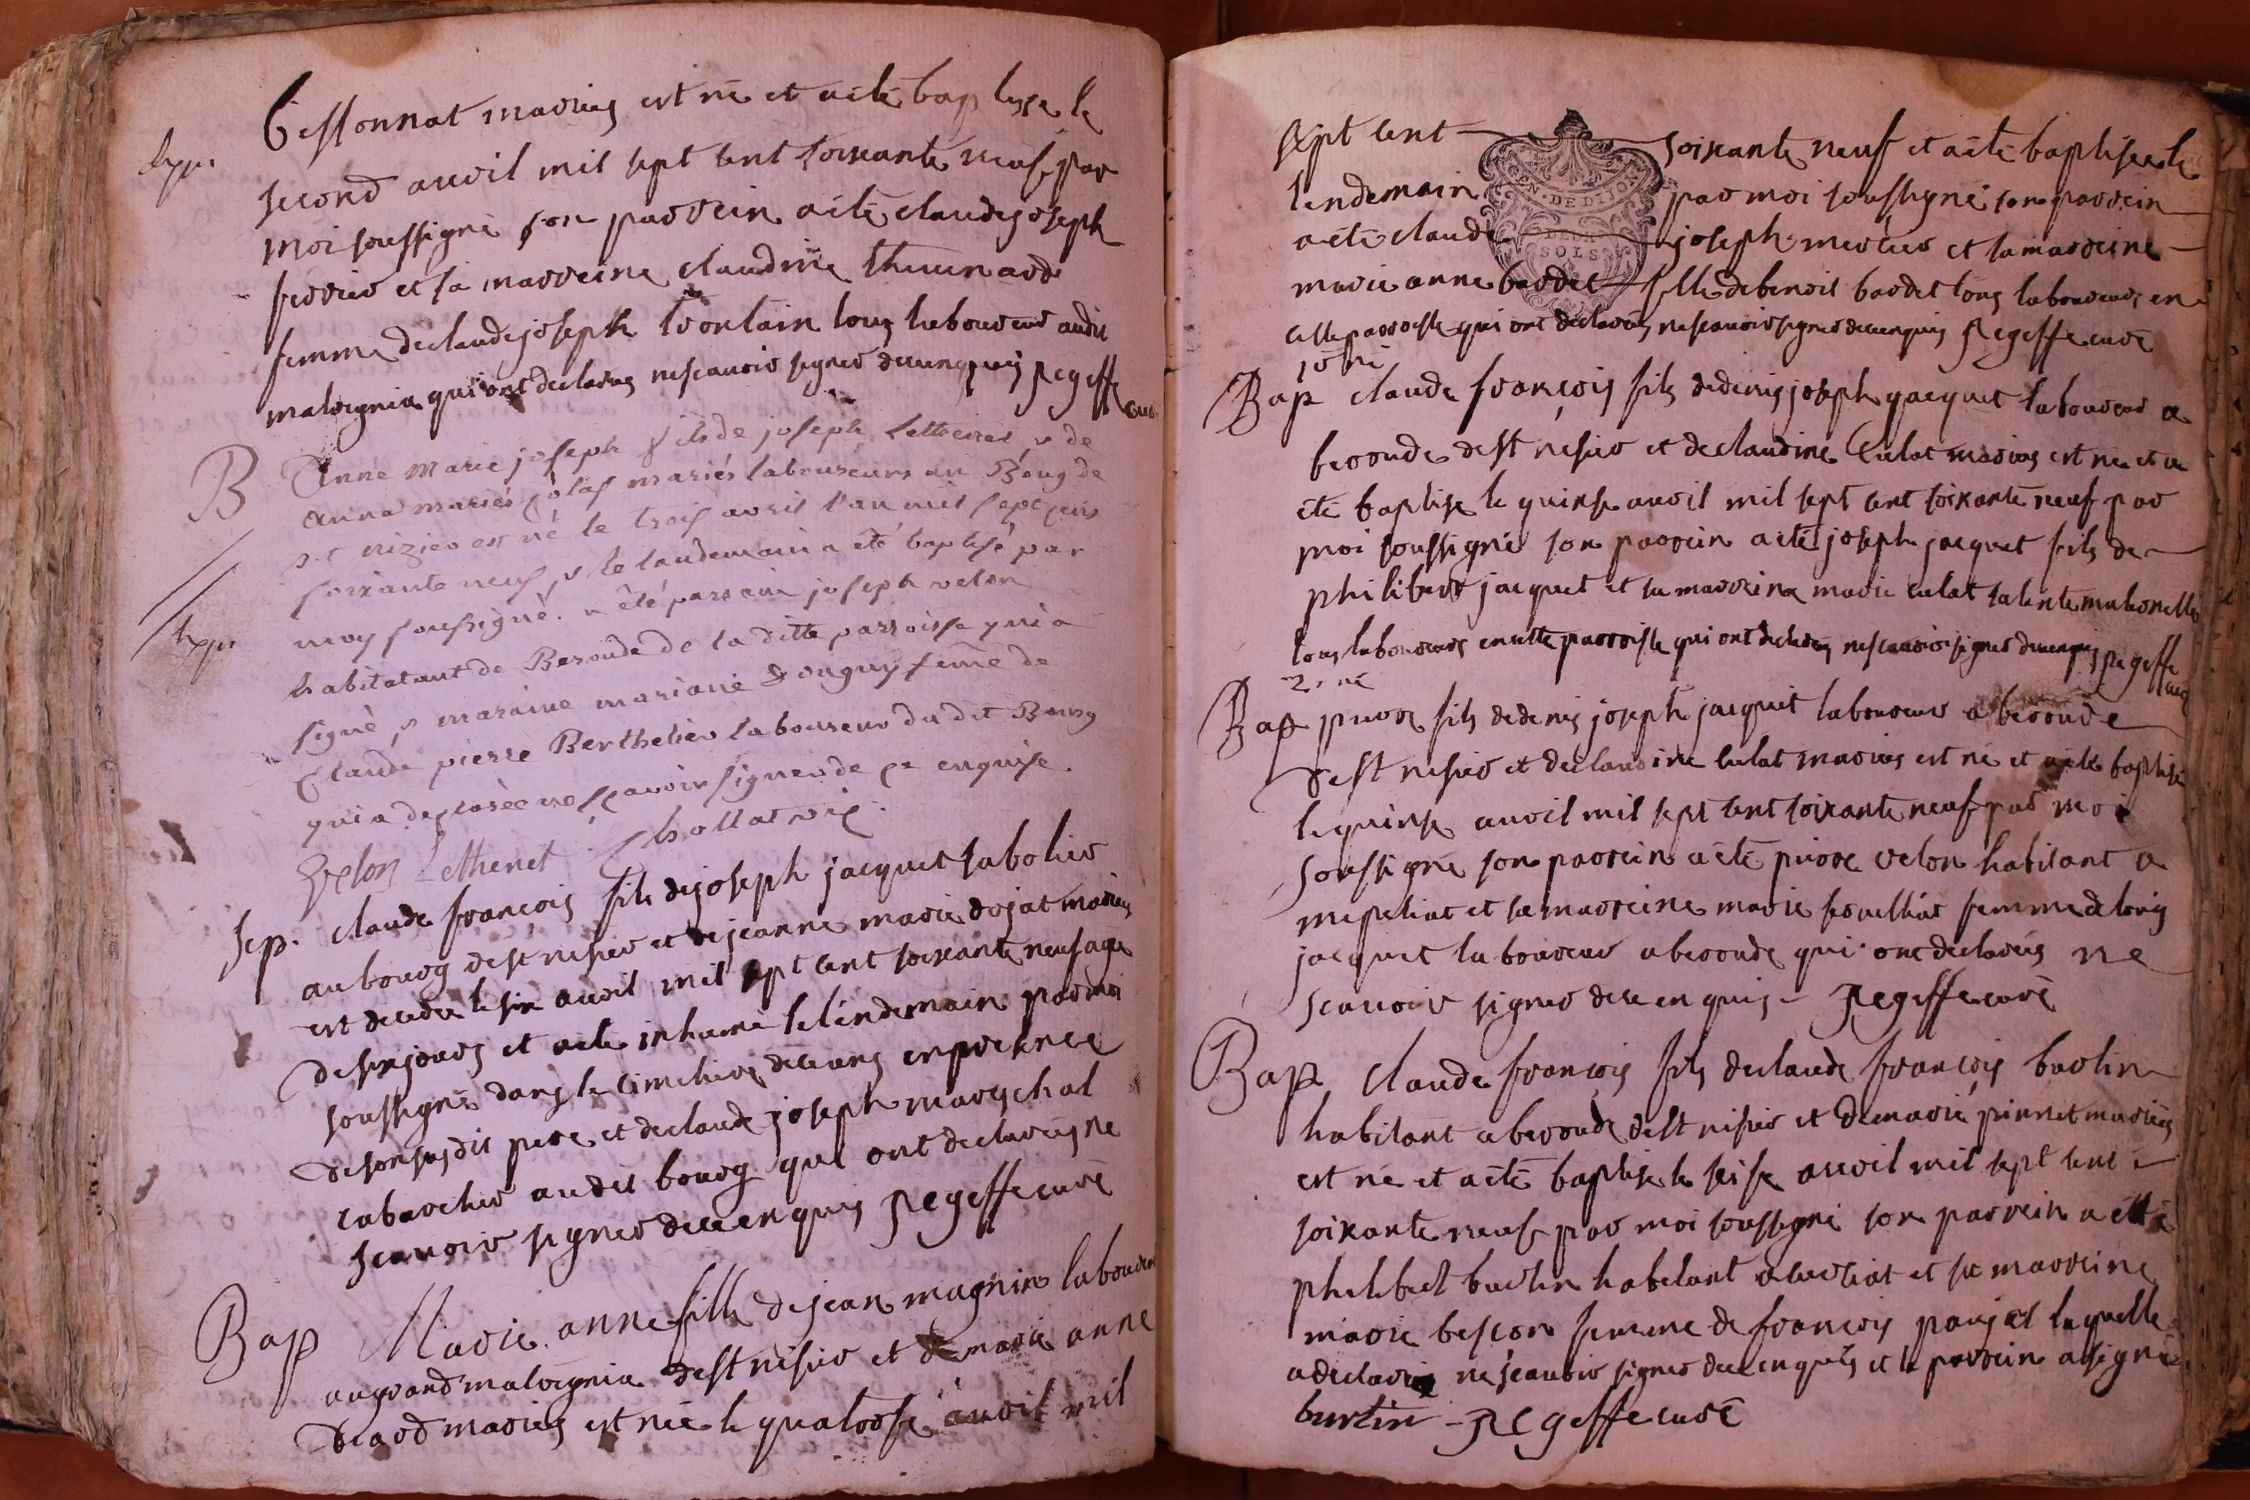 sep.
Cessonnat mariés est né et a été baptisé le
second avril mil sept cent soixante neuf par
moi soussigné son parrein a été claude joseph
ferrier et sa marreine claudine thevenard
femme de claude joseph trontain tous laboureur audit
malvignia qui ont declarés ne scavoir signer de ce enquis Regeffe curé
B Anne Marie joseph fils de joseph Lethenet, & de
Anna mariés laboureurs au Bourg de
st nizier est né le trois avril l'an mil sept cens
soixante neuf, & le landemain a été baptisé par
moy soussigné. a été parrein joseph velon
sep.
habitatant de Beroude de la ditte parroisse qui a
signé & maraine mariane Donguy feme de
Claude pierre Berthelier laboureur du dit Bourg
qui a declarée ne sçavoir signer de ce enquise.
Velon Lethenet Chollat vic.
Sep. claude francois fils de joseph jacquet sabotier
au bourg de st nisier et de jeanne marie dojat mariés
est decedé le six avril mil sept cent soixante neuf agé
de six jours et a été inhumé le lendemain par moi
soussigné dans le cimetiere de ceans en presence
de son susdit pere et de claude joseph mareschal
cabaretier audit bourg qui ont declarés ne
scavoir signer de ce enquis Regeffe curé
Bap Marie anne fille de jean magnin laboureur
au grand malvignia de st nisier et de marie anne
mariés est née le quatorse avril mil
sept cent soixante neuf et a été baptisée le
GEN. DE DIJON
SOLS
lendemain par moi soussigné son parrein
a été claude joseph mercier et sa marreine
marie anne bardet fille de benoit bardet tous laboureurs en
cette parroisse qui ont declarés ne scavoir signer de ce enquis Regeffe curé
1er né
Bap claude françois fils de denis joseph jacquet laboureur a
beroude de st nisier et de claudine Culat mariés est né et a
été baptisé le quinse avril mil sept cent soixante neuf par
moi soussigné son parrein a été joseph jacquet fils de
philibert jacquet et sa marreine marie culat sa tente maternelle
tous laboureurs en cette parroisse qui ont declarés ne scavoir signer de ce enquis Regeffe curé
2. né
Bap pierre fils de denis joseph jacquet laboureur a beroude
de st nisier et de claudine culat mariés est né et a été baptisé
le quinse avril mil sept cent soixante neuf par moi
soussigné son parrein a été pierre velon habitant a
mepeliat et sa marreine marie femme de louis
jacquet laboureur a beroude qui ont declarés ne
scavoir signer de ce enquis Regeffe curé
Bap Claude françois fils de claude françois burtin
habitant a beroude de st nisier et de marie pinnet mariés
est né et a été baptisé le seise avril mil sept cent
soixante neuf par moi soussigné son parrein a été
philibert burtin habitant a et sa marreine
marie bescon femme de françois laquelle
a declaré ne scavoir signer de ce enquis et le parrein a signé
burtin Regeffe curé